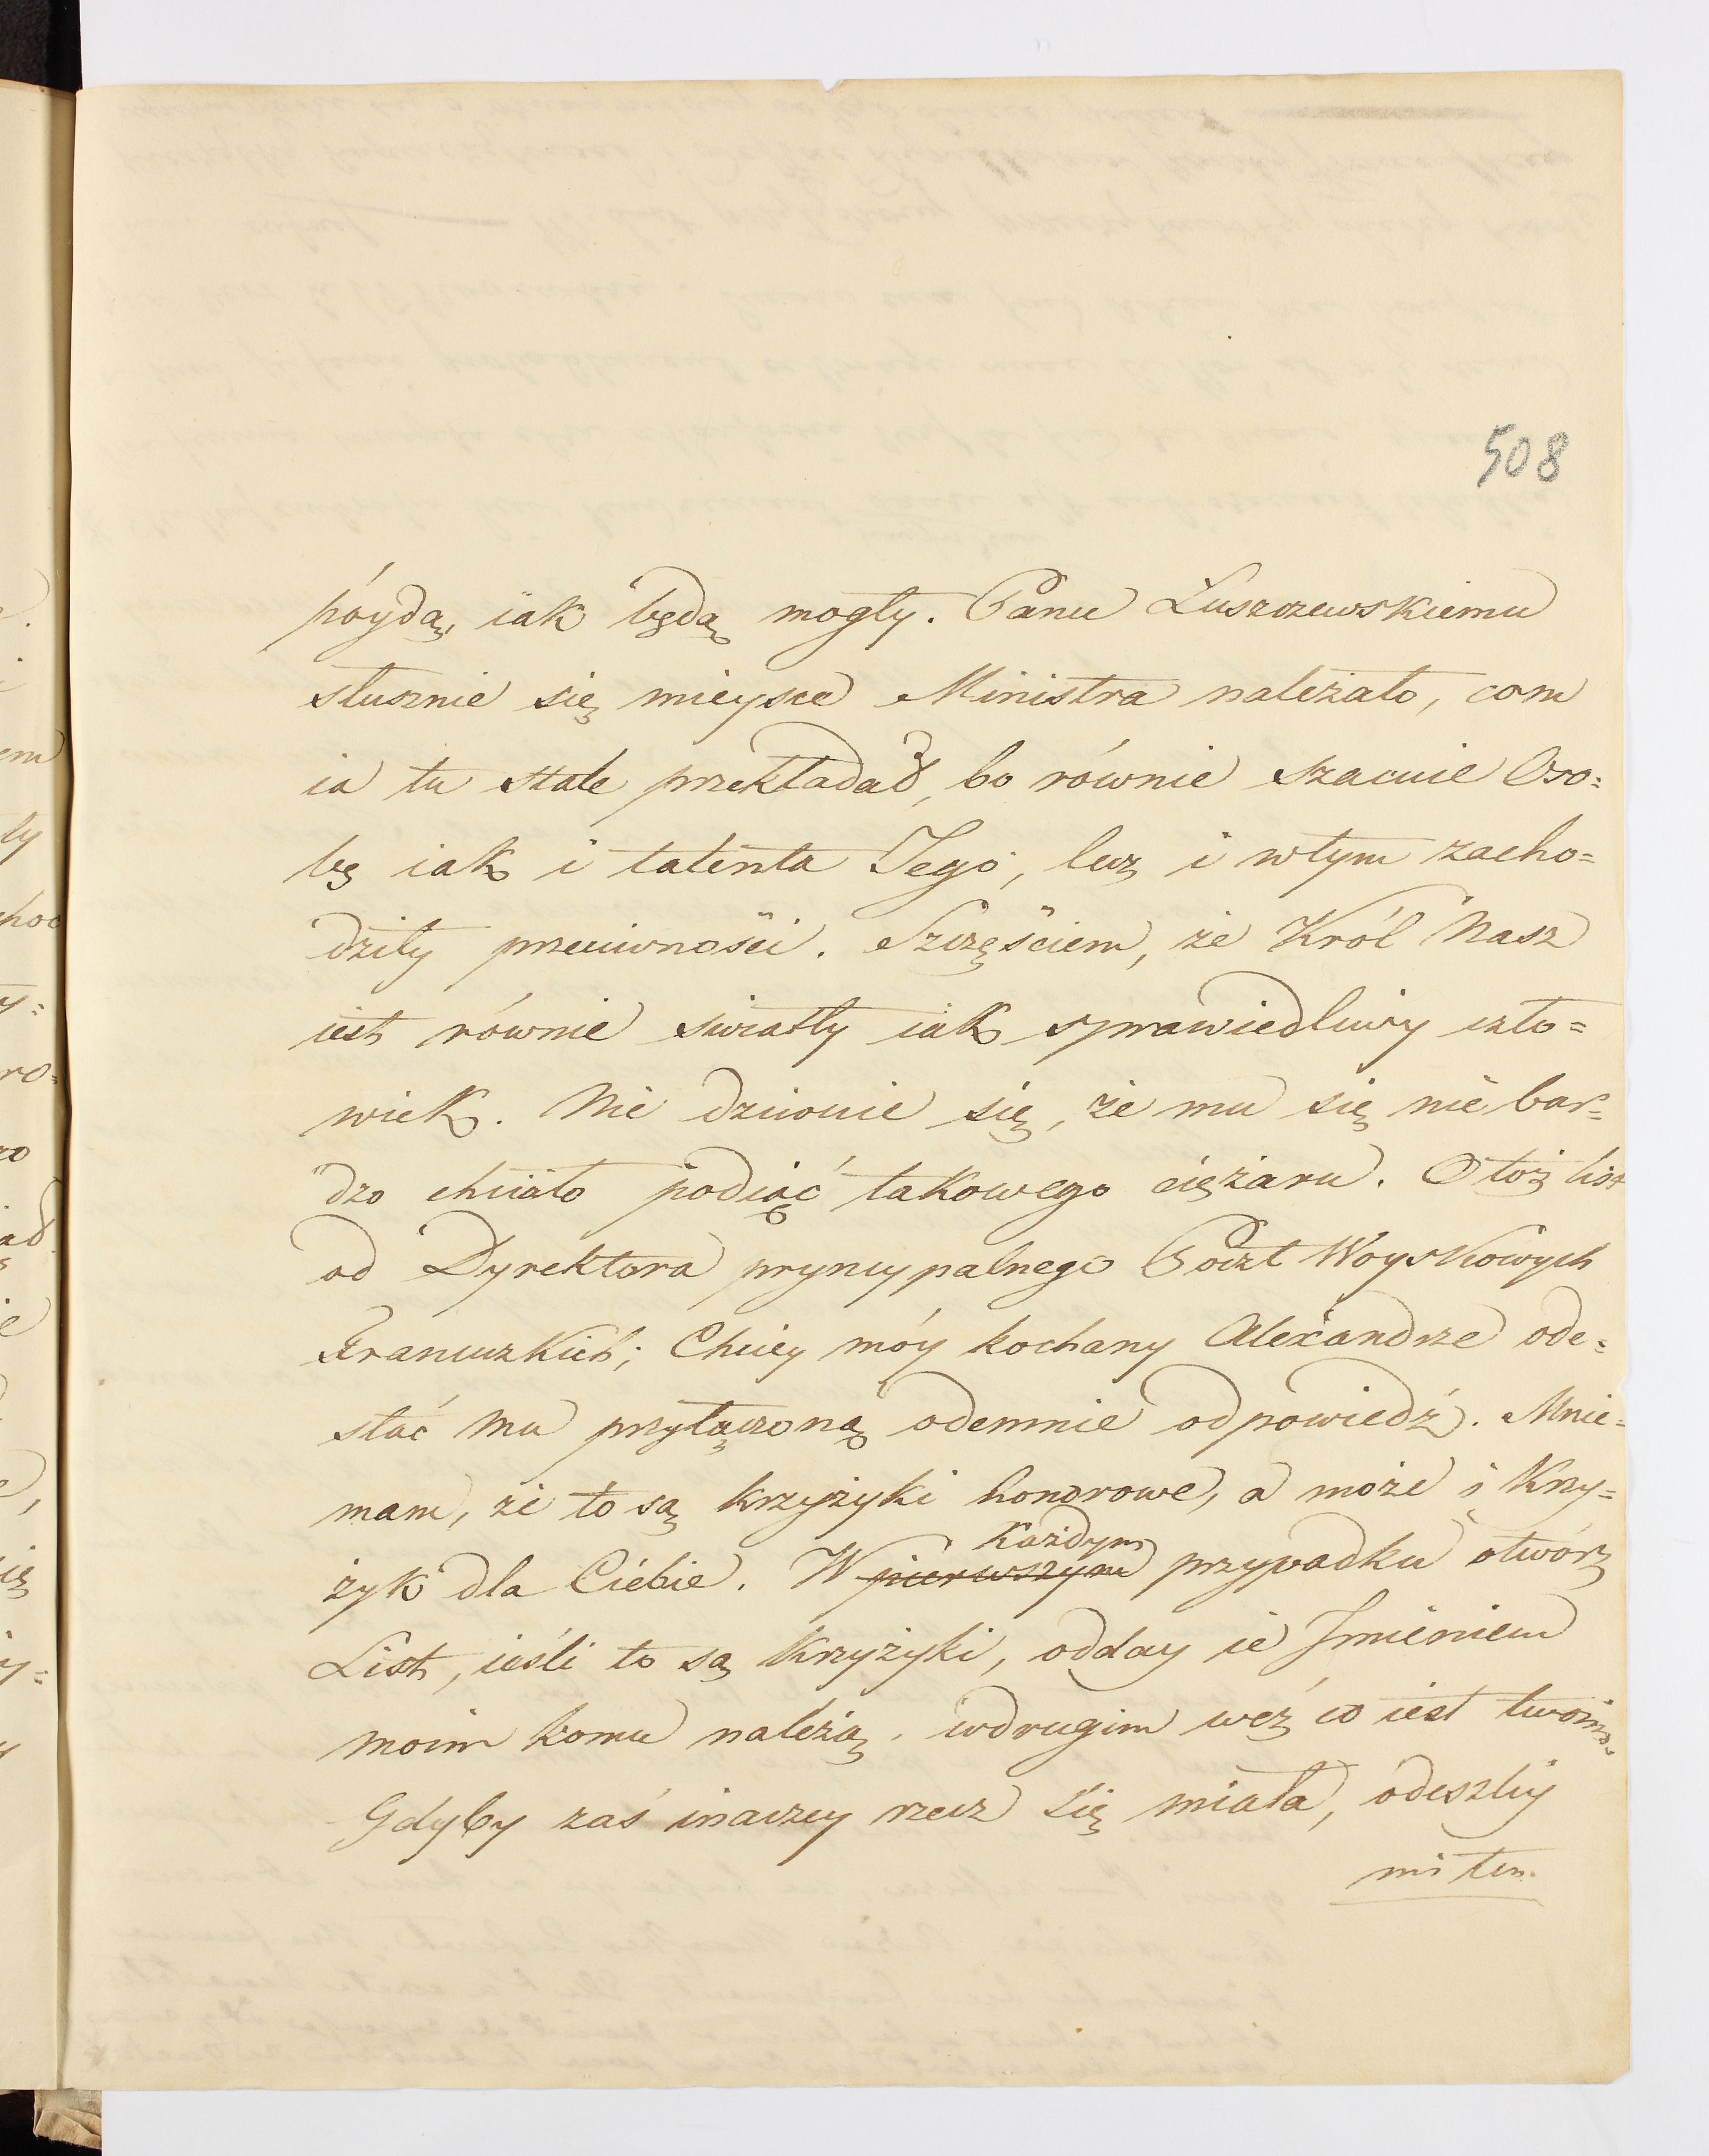 508
póydą, iak będą mogły. Panu Łuszczewskiemu
słusznie się mieysce Ministra należało, com
ia tu stale przekładał, bo równie szacuie Oso=
bę iak i talenta Jego, lecz i wtym zacho=
dziły przeciwności. Szczęściem, że Król Nasz
iest równie światły iak sprawiedliwy czło=
wiek. Nie dziwuie się, że mu się nie bar=
dzo chciało podiąć takowego ciężaru. Otoż list
od Dyrektora pryncypalnego Poczt Woyskowych
Francuzkich; Chciey móy kochany Alexandrze ode=
słać mu przyłączoną odemnie odpowiedź. Mnie=
mam, że to są krzyżyki honorowe, a może i Krzy=
żyk dla Ciebie. W pierwszym Każdym przypadku otwórz
List, ieśli to są Krzyżyki, odday ie Imieniem
moim komu należą, wdrugim weź co iest twoim.
Gdyby zaś inaczey rzecz się miała, odeszliy
mi ten.